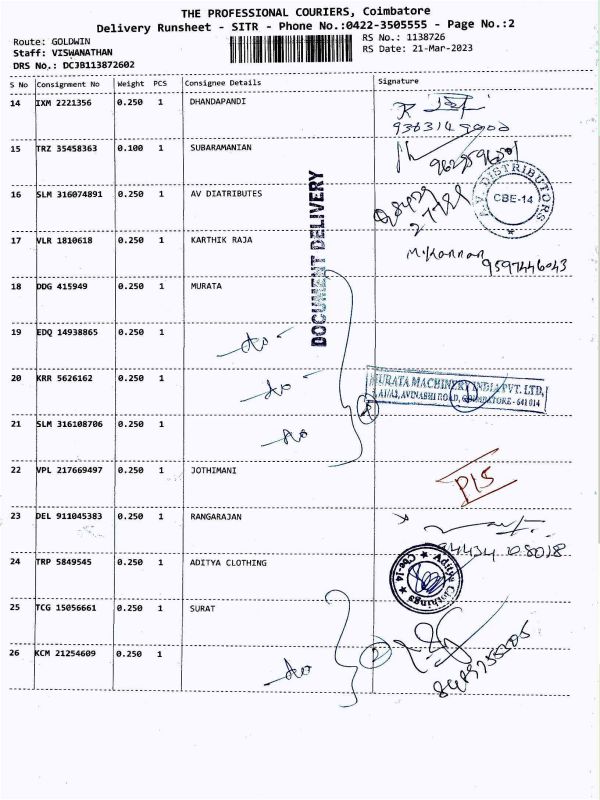 THE PROFESSIONAL COURIERS, Coimbatore
Delivery Runsheet - SITR - Phone No.:0422-3505555 - Page No.:2
Route: GOLDWIN
RS No.: 1138726
Staff: VISWANATHAN
RS Date: 21-Mar-2023
DRS No.: DCJB113872602
S No Consignment No Weight PCS Consignee Details Signature
14 IXM 2221356 0.250 1 DHANDAPANDI
15 TRZ 35458363 0.100 1 SUBARAMANIAN
16 SLM 316074891 0.250 1 AV DIATRIBUTES
A.V. DISTRIBUTORS
CBE-14
17 VLR 1810618 0.250 1 KARTHIK RAJA
M.Kannan
9597446043
DOCUMENT DELIVERY
18 DDG 415949 0.250 1 MURATA
19 EDQ 14938865 0.250 1
20 KRR 5626162 0.250 1
MURATA MACHINERY INDIA PVT. LTD,
AVINASHI ROAD, COIMBATORE - 641 014
21 SLM 316108706 0.250 1
22 VPL 217669497 0.250 1 JOTHIMANI
PIS
23 DEL 911045383 0.250 1 RANGARAJAN
24 TRP 5849545 0.250 1 ADITYA CLOTHING
Aditya Clothings
Cbe-14
25 TCG 15056661 0.250 1 SURAT
26 KCM 21254609 0.250 1